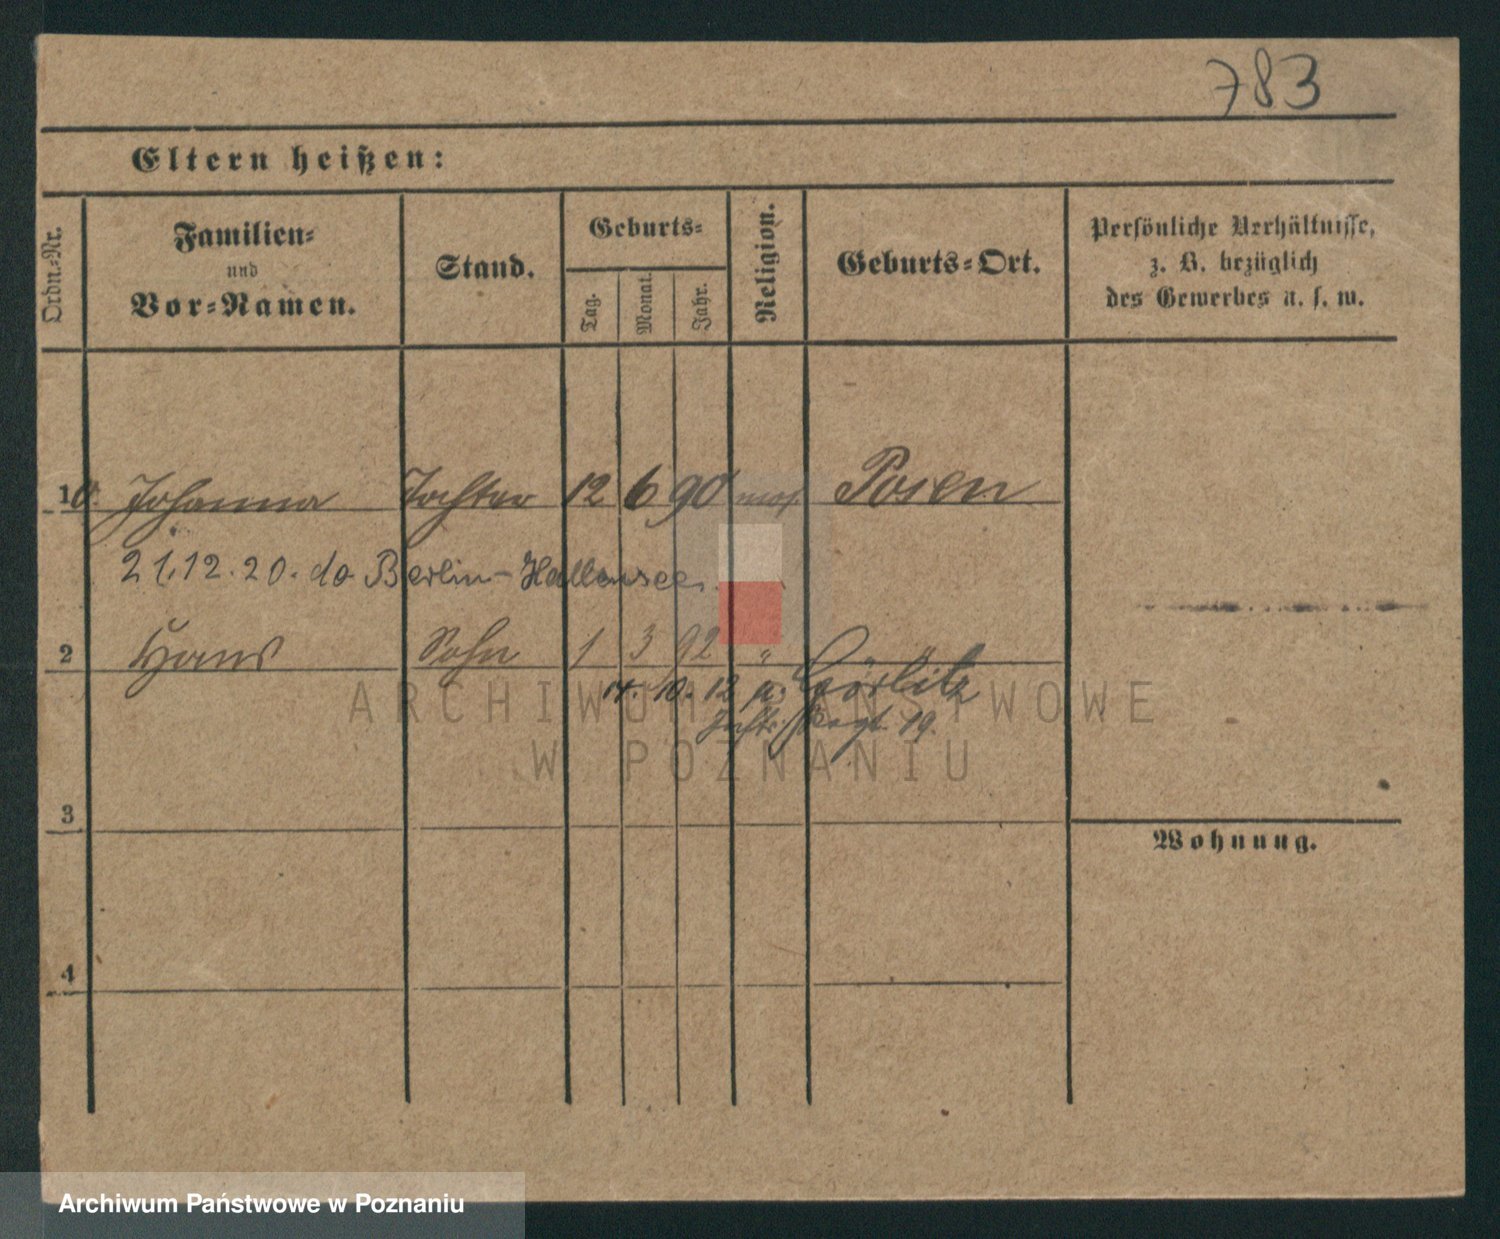 783
Eltern heißen:
Ordn.-Nr.
Familien-
und
Vor-Namen.
Stand.
Geburts-
Tag.
Monat.
Jahr.
Religion.
Geburts-Ort.
Persönliche Verhältnisse,
z. B. bezüglich
des Gewerbes u. s. w.
1 Johanna Tochter 12 6 90 mos. Posen
21.12.20. do Berlin-Hallensee.
2 Hans Sohn 1 3 92 " "
14. 10. 12 a. Görlitz
19.
3
4
Wohnung.
ARCHIWUM PAŃSTWOWE
W POZNANIU
Archiwum Państwowe w Poznaniu